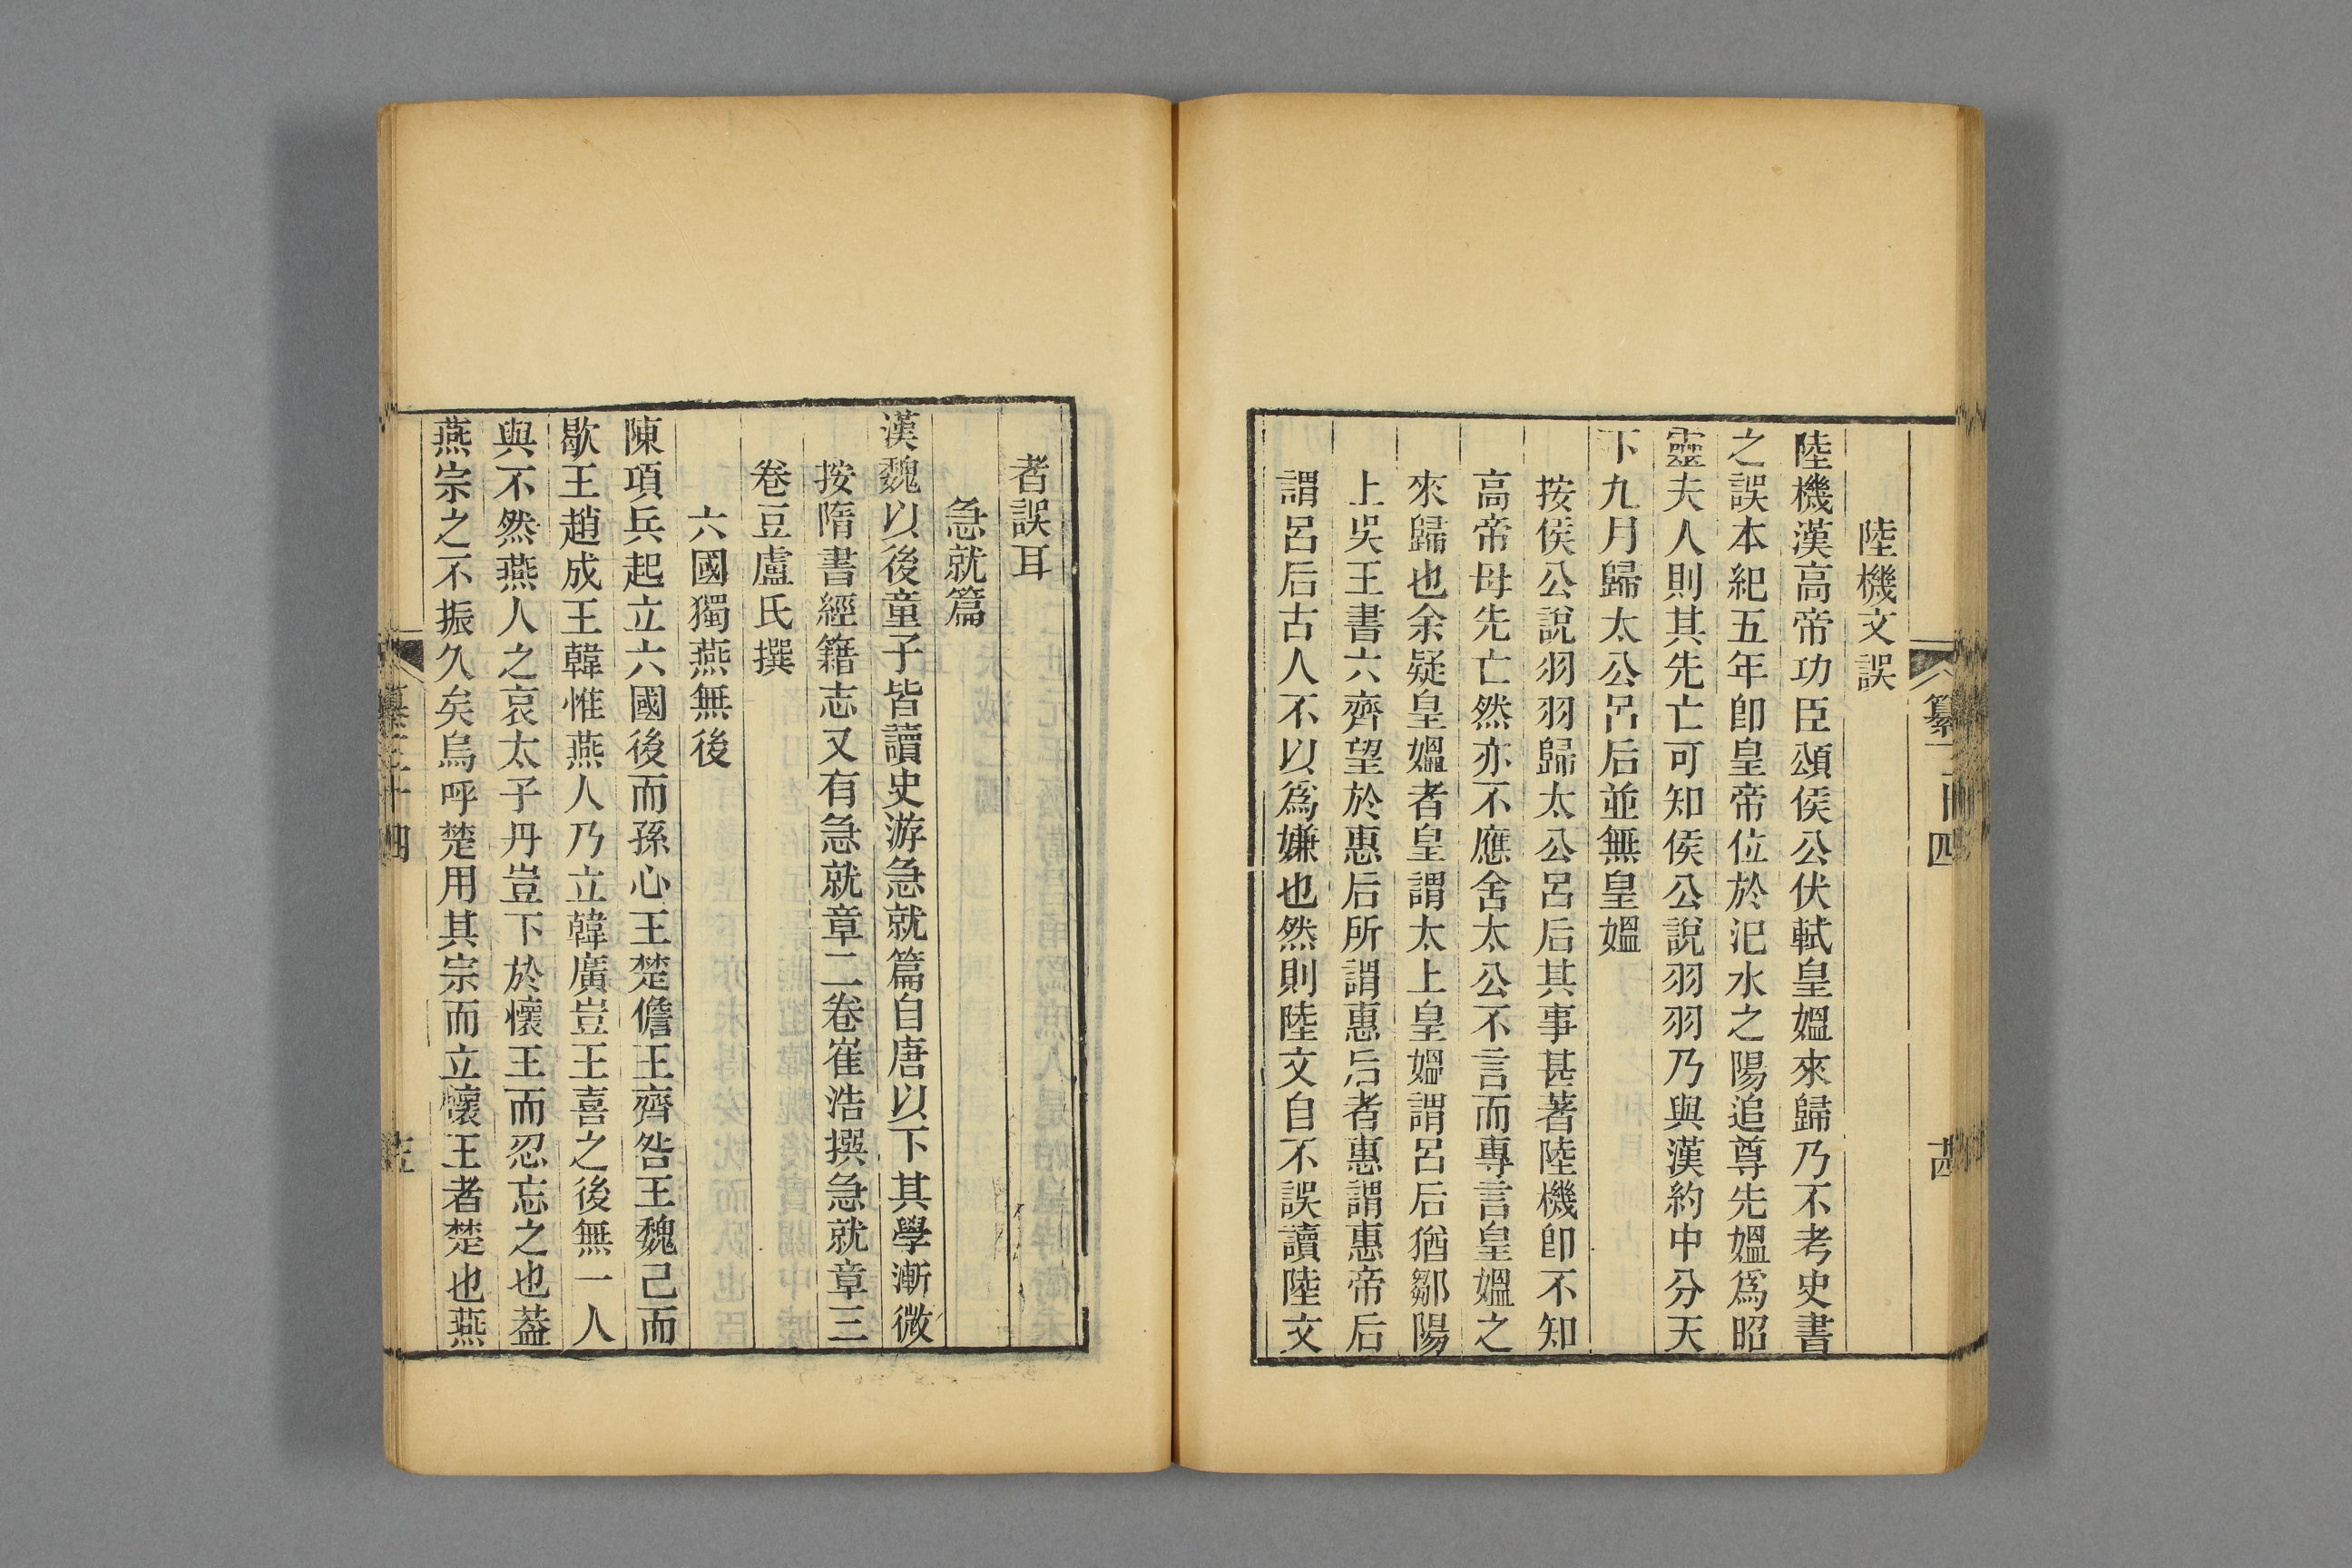 陸機文誤
陸機漢高帝功臣頌侯公伏軾皇媼來歸乃不考史書
之誤本紀五年卽皇帝位於汜水之陽追尊先媼爲昭
靈夫人則其先亡可知侯公說羽羽乃與漢約中分天
下九月歸太公呂后並無皇媼
按侯公說羽羽歸太公呂后其事甚著陸機卽不知
高帝母先亡然亦不應舍太公不言而專言皇媼之
來歸也余疑皇媼者皇謂太上皇媼謂呂后猶鄒陽
上吳王書六齊望於惠后所謂惠后者惠謂惠帝后
謂呂后古人不以爲嫌也然則陸文自不誤讀陸文
者誤耳
急就篇
漢魏以後童子皆讀史游急就篇自唐以下其學漸微
按隋書經籍志又有急就章二卷崔浩撰急就章三
卷豆盧氏撰
六國獨燕無後
陳項兵起立六國後而孫心王楚儋王齊咎王魏己而
歇王趙成王韓惟燕人乃立韓廣豈王喜之後無一人
與不然燕人之哀太子丹豈下於懷王而忍忘之也葢
燕宗之不振久矣烏呼楚用其宗而立懷王者楚也燕